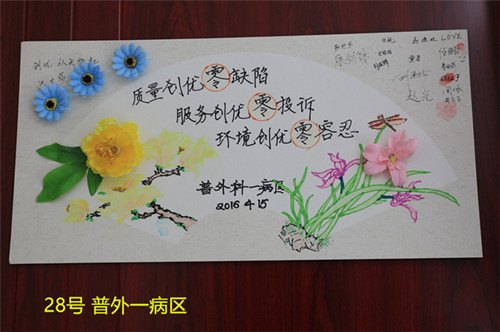 质量创优零缺陷
服务创优零投诉
环境创优零容忍
普外科一病区
2016.4.15
LOVE
28号 普外一病区